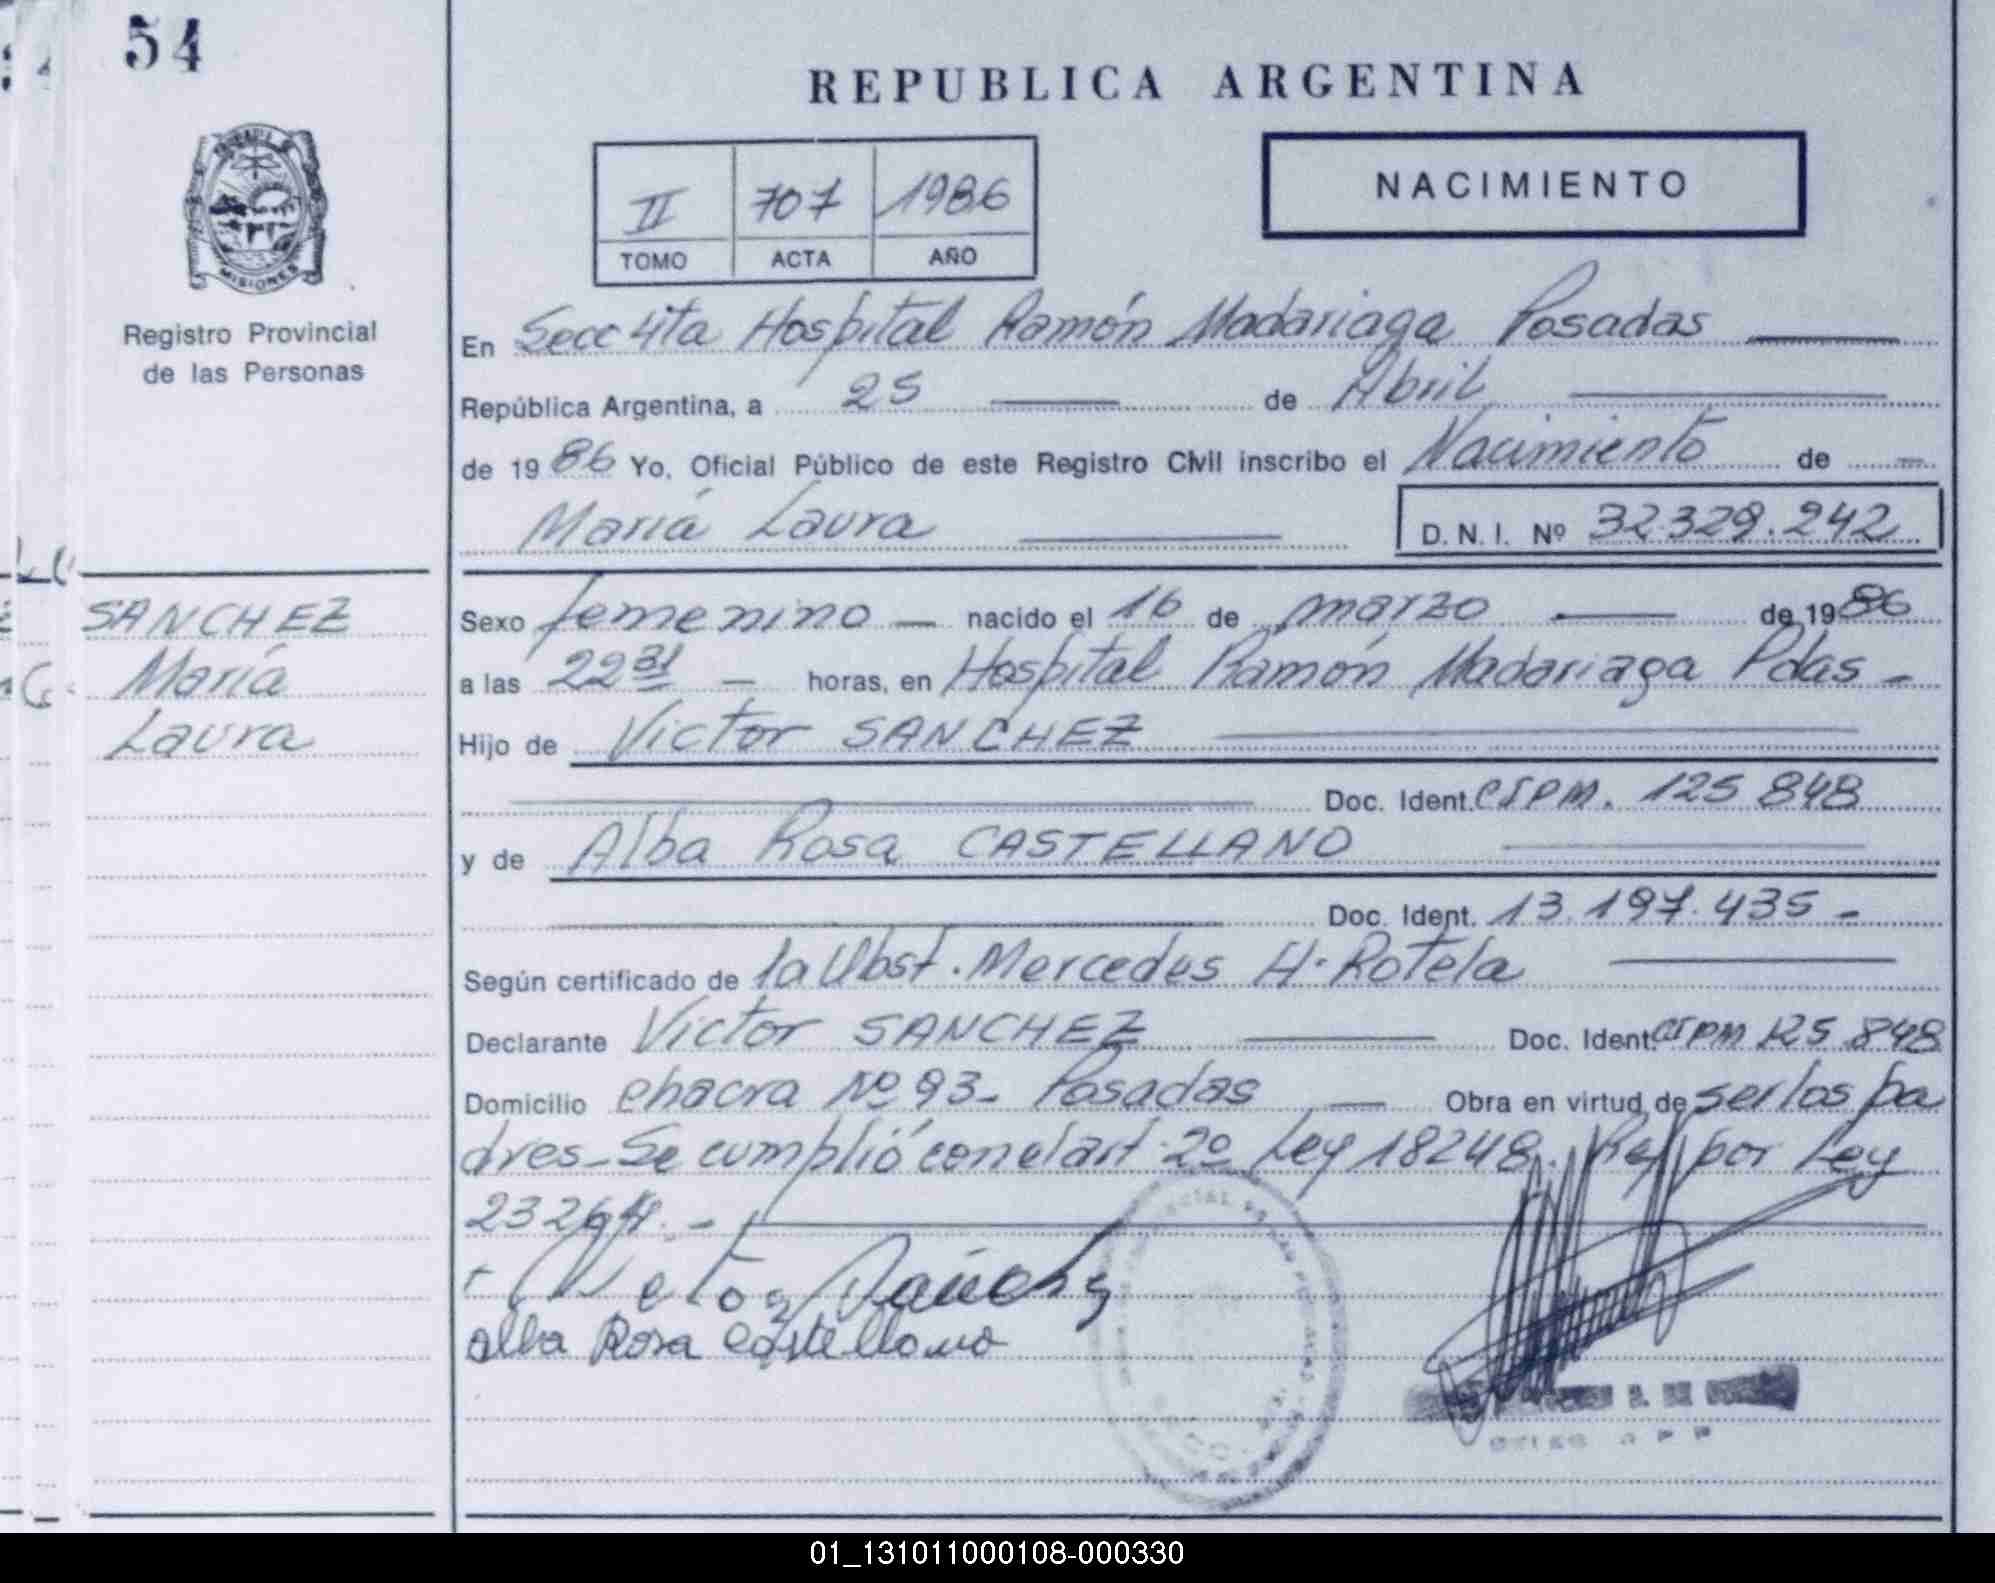 54
REPUBLICA ARGENTINA
MISIONES
Registro Provincial
de las Personas
II 707 1986
TOMO ACTA AÑO
NACIMIENTO
En Secc 4ta Hospital Ramón Madariaga Posadas
República Argentina, a 25 de Abril
de 1986 Yo, Oficial Público de este Registro Civil inscribo el Nacimiento de
María Laura D. N. I. Nº 32.329.242
SANCHEZ
María
Laura
Sexo femenino nacido el 16 de marzo de 1986
a las 22 31 horas, en Hospital Ramón Madariaga Pdas
Hijo de Victor SANCHEZ
Doc. Ident. CIPM. 125 848
y de Alba Rosa CASTELLANO
Doc. Ident. 13.197.435
Según certificado de la Obst. Mercedes H. Rotela
Declarante Victor SANCHEZ Doc. Ident. CIPM 125.848
Domicilio chacra Nº 93 - Posadas Obra en virtud de ser los pa
dres - Se cumplió con el art. 2º Ley 18248. Ref por Ley
23264. -
Victor Sanchez
alba Rosa Castellano
01_131011000108-000330